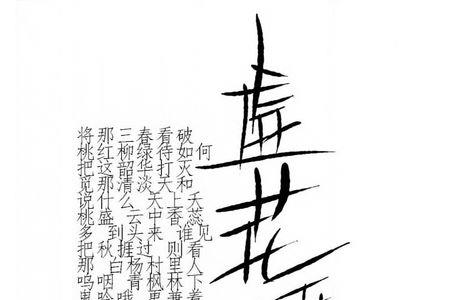 虚花
将那三春看破
桃红柳绿待如何
把这韶华打灭
觅那清淡天和
说什么天上夭
桃盛云中香蕊
多到头来谁见
把秋捱过则看
那白杨村里人
呜咽青枫林下